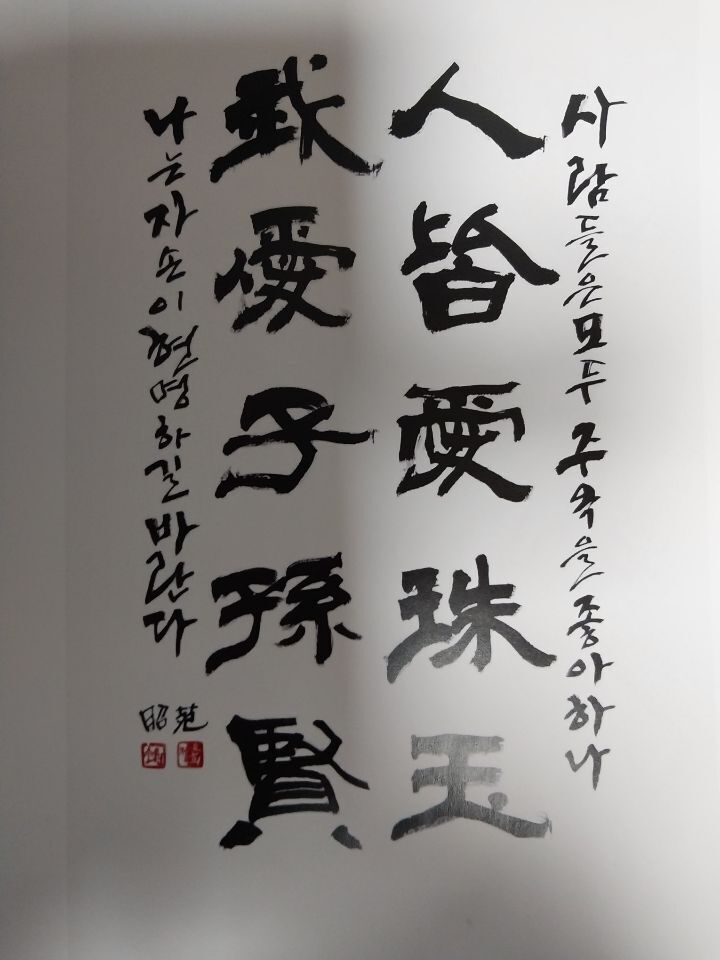 사람들은모두주옥을좋아하나
人皆愛珠玉
我愛子孫賢
나는자손이현명하길바란다
昭範